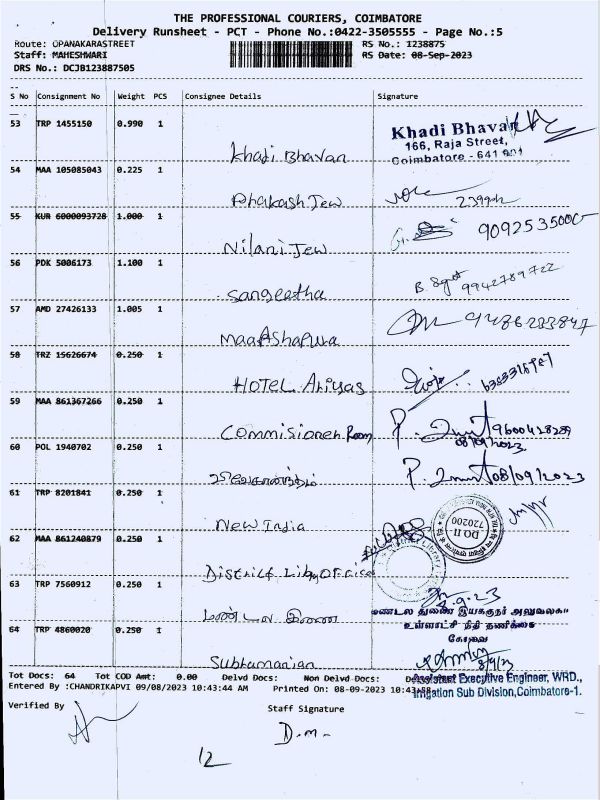 THE PROFESSIONAL COURIERS, COIMBATORE
Delivery Runsheet - PCT - Phone No.:0422-3505555 - Page No.:5
Route: OPANAKARASTREET RS No.: 1238875
Staff: MAHESHWARI RS Date: 08-Sep-2023
DRS No.: DCJB123887505
S No Consignment No Weight PCS Consignee Details Signature
53 TRP 1455150 0.990 1
Khadi Bhavan
Khadi Bhavan
166, Raja Street,
Coimbatore - 641 001
54 MAA 105085043 0.225 1
Phakash Jew
55 KUR 6000093728 1.000 1
Nilani Jew 9092535000
56 PDK 5006173 1.100 1
Sangeetha 9942789722
57 AMD 27426133 1.005 1
MaaAshapura 9486203847
58 TRZ 15626674 0.250 1
HOTEL Ariyas
59 MAA 861367266 0.250 1
Commisioner Room 9600428289
08/09/2023
60 POL 1940702 0.250 1
08/09/2023
61 TRP 8201841 0.250 1
New India
DO II
720200
62 MAA 861240879 0.250 1
District Liby Office
63 TRP 7560912 0.250 1
மண்டல இணை
மண்டல துணை இயக்குநர் அலுவலக
உள்ளாட்சி நிதி தணிக்கை
கோவை
64 TRP 4860020 0.250 1
Subhamanian
8/9/23
Assistant Executive Engineer, WRD.,
Irrigation Sub Division, Coimbatore-1.
Tot Docs: 64 Tot COD Amt: 0.00 Delvd Docs: Non Delvd Docs:
Entered By :CHANDRIKAPVI 09/08/2023 10:43:44 AM Printed On: 08-09-2023 10:43:58
Verified By Staff Signature
D.m.
12